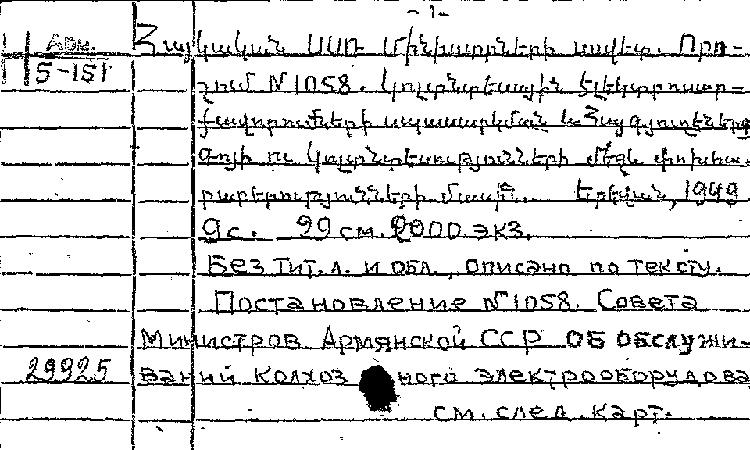 - 1 -
Арм. Հայկական ՍՍՌ Մինիստրների սովետ. Որո-
5-151 շում N 1058. Կոլտնտեսային էլեկտրոսար-
քավորումների սպասարկման և Հայգյուղէներգո
ի ու կոլտնտեսությունների մեջև փոխհա-
րաբերությունների մասին. Երևան, 1949
9с. 29 см. 2000 экз.
Без тит. л. и обл., описано по тексту.
Постановление N 1058. Совета
Министров Армянской ССР об обслужи-
29925 ваний колхозного электрооборудова
см. след. карт.